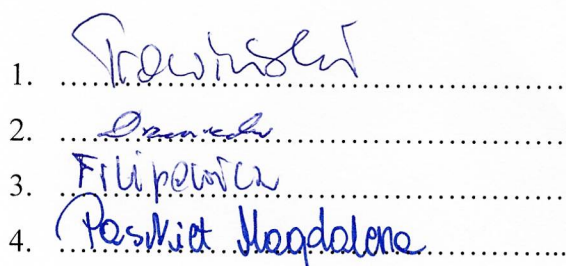 1. Trawiński
2.
3. Filipowicz
4. Paskiet Magdalena